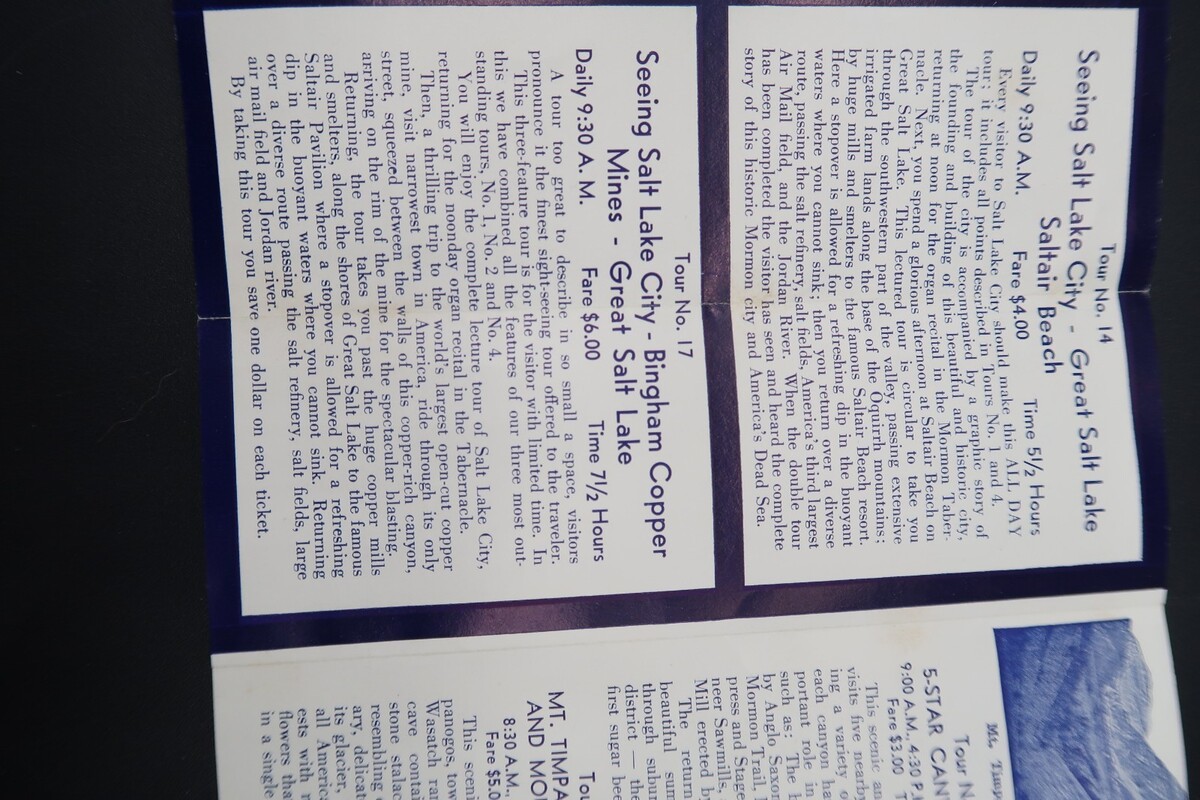 Tour No. 14
Seeing Salt Lake City - Great Salt Lake
Saltair Beach
Daily 9:30 A.M. Fare $4.00 Time 5½ Hours
Every visitor to Salt Lake City should make this ALL DAY
tour; it includes all points described in Tours No. 1 and 4.
The tour of the city is accompanied by a graphic story of
the founding and building of this beautiful and historic city,
returning at noon for the organ recital in the Mormon Taber-
nacle. Next, you spend a glorious afternoon at Saltair Beach on
Great Salt Lake. This lectured tour is circular to take you
through the southwestern part of the valley, passing extensive
irrigated farm lands along the base of the Oquirrh mountains;
by huge mills and smelters to the famous Saltair Beach resort.
Here a stopover is allowed for a refreshing dip in the buoyant
waters where you cannot sink; then you return over a diverse
route, passing the salt refinery, salt fields, America's third largest
Air Mail field, and the Jordan River. When the double tour
has been completed the visitor has seen and heard the complete
story of this historic Mormon city and America's Dead Sea.
Tour No. 17
Seeing Salt Lake City - Bingham Copper
Mines - Great Salt Lake
Daily 9:30 A. M. Fare $6.00 Time 7½ Hours
A tour too great to describe in so small a space, visitors
pronounce it the finest sight-seeing tour offered to the traveler.
This three-feature tour is for the visitor with limited time. In
this we have combined all the features of our three most out-
standing tours, No. 1, No. 2 and No. 4.
You will enjoy the complete lecture tour of Salt Lake City,
returning for the noonday organ recital in the Tabernacle.
Then, a thrilling trip to the world's largest open-cut copper
mine, visit narrowest town in America, ride through its only
street, squeezed between the walls of this copper-rich canyon,
arriving on the rim of the mine for the spectacular blasting.
Returning, the tour takes you past the huge copper mills
and smelters, along the shores of Great Salt Lake to the famous
Saltair Pavilion where a stopover is allowed for a refreshing
dip in the buoyant waters where you cannot sink. Returning
over a diverse route passing the salt refinery, salt fields, large
air mail field and Jordan river.
By taking this tour you save one dollar on each ticket.
Mt. Timp
Tour N
5-STAR CAN
9:00 A.M., 4:30 P.
Fare $3.00 T
This scenic an
visits five nearby
ing a variety o
each canyon ha
portant role in
such as: The
by Anglo Saxon
Mormon Trail,
press and Stage
neer Sawmills,
Mill erected by
The return
beautiful sum
through subur
district — the
first sugar bee
Tou
MT. TIMPA
AND MO
8:30 A.M.,
Fare $5.0
This sceni
panogos, tow
Wasatch ran
cave contai
stone stalac
resembling
ary, delicat
its glacier,
all Americ
ests with r
flowers tha
in a single